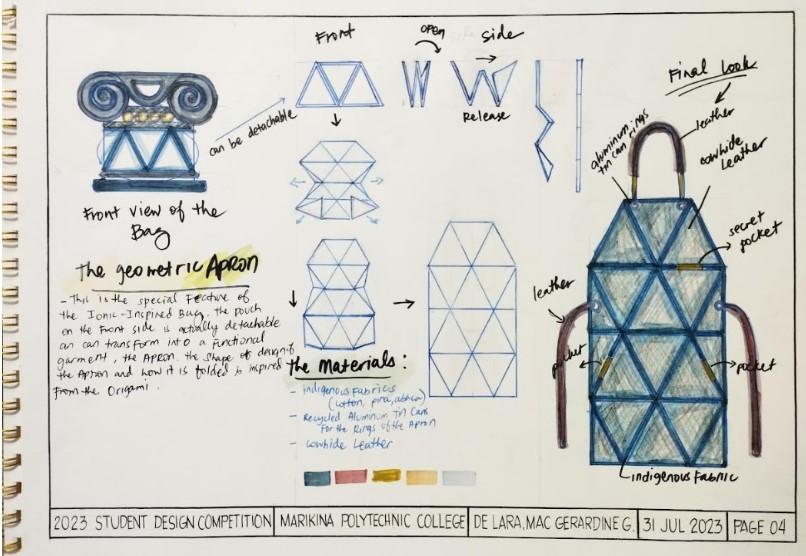 Front
OPEN
side
Release
can be detachable
Front view of the
Bag
The geometric Apron
- This is the special Feature of
the Ionic-Inspired Bag. the pouch
on the Front side is actually detachable
an can transform into a functional
garment, the Apron. the shape of design of
the Apron and how it is folded is inspired
From the Origami.
The Materials:
- Indigenous Fabrics
(cotton, pina, abaca)
- Recycled Aluminum Tin Cans
For the Rings of the Apron
- Cowhide Leather
Final Look
aluminum
tin can rings
leather
cowhide
leather
secret
pocket
leather
pocket
pocket
indigenous Fabric
2023 STUDENT DESIGN COMPETITION
MARIKINA POLYTECHNIC COLLEGE
DE LARA, MAC GERARDINE G.
31 JUL 2023
PAGE 04